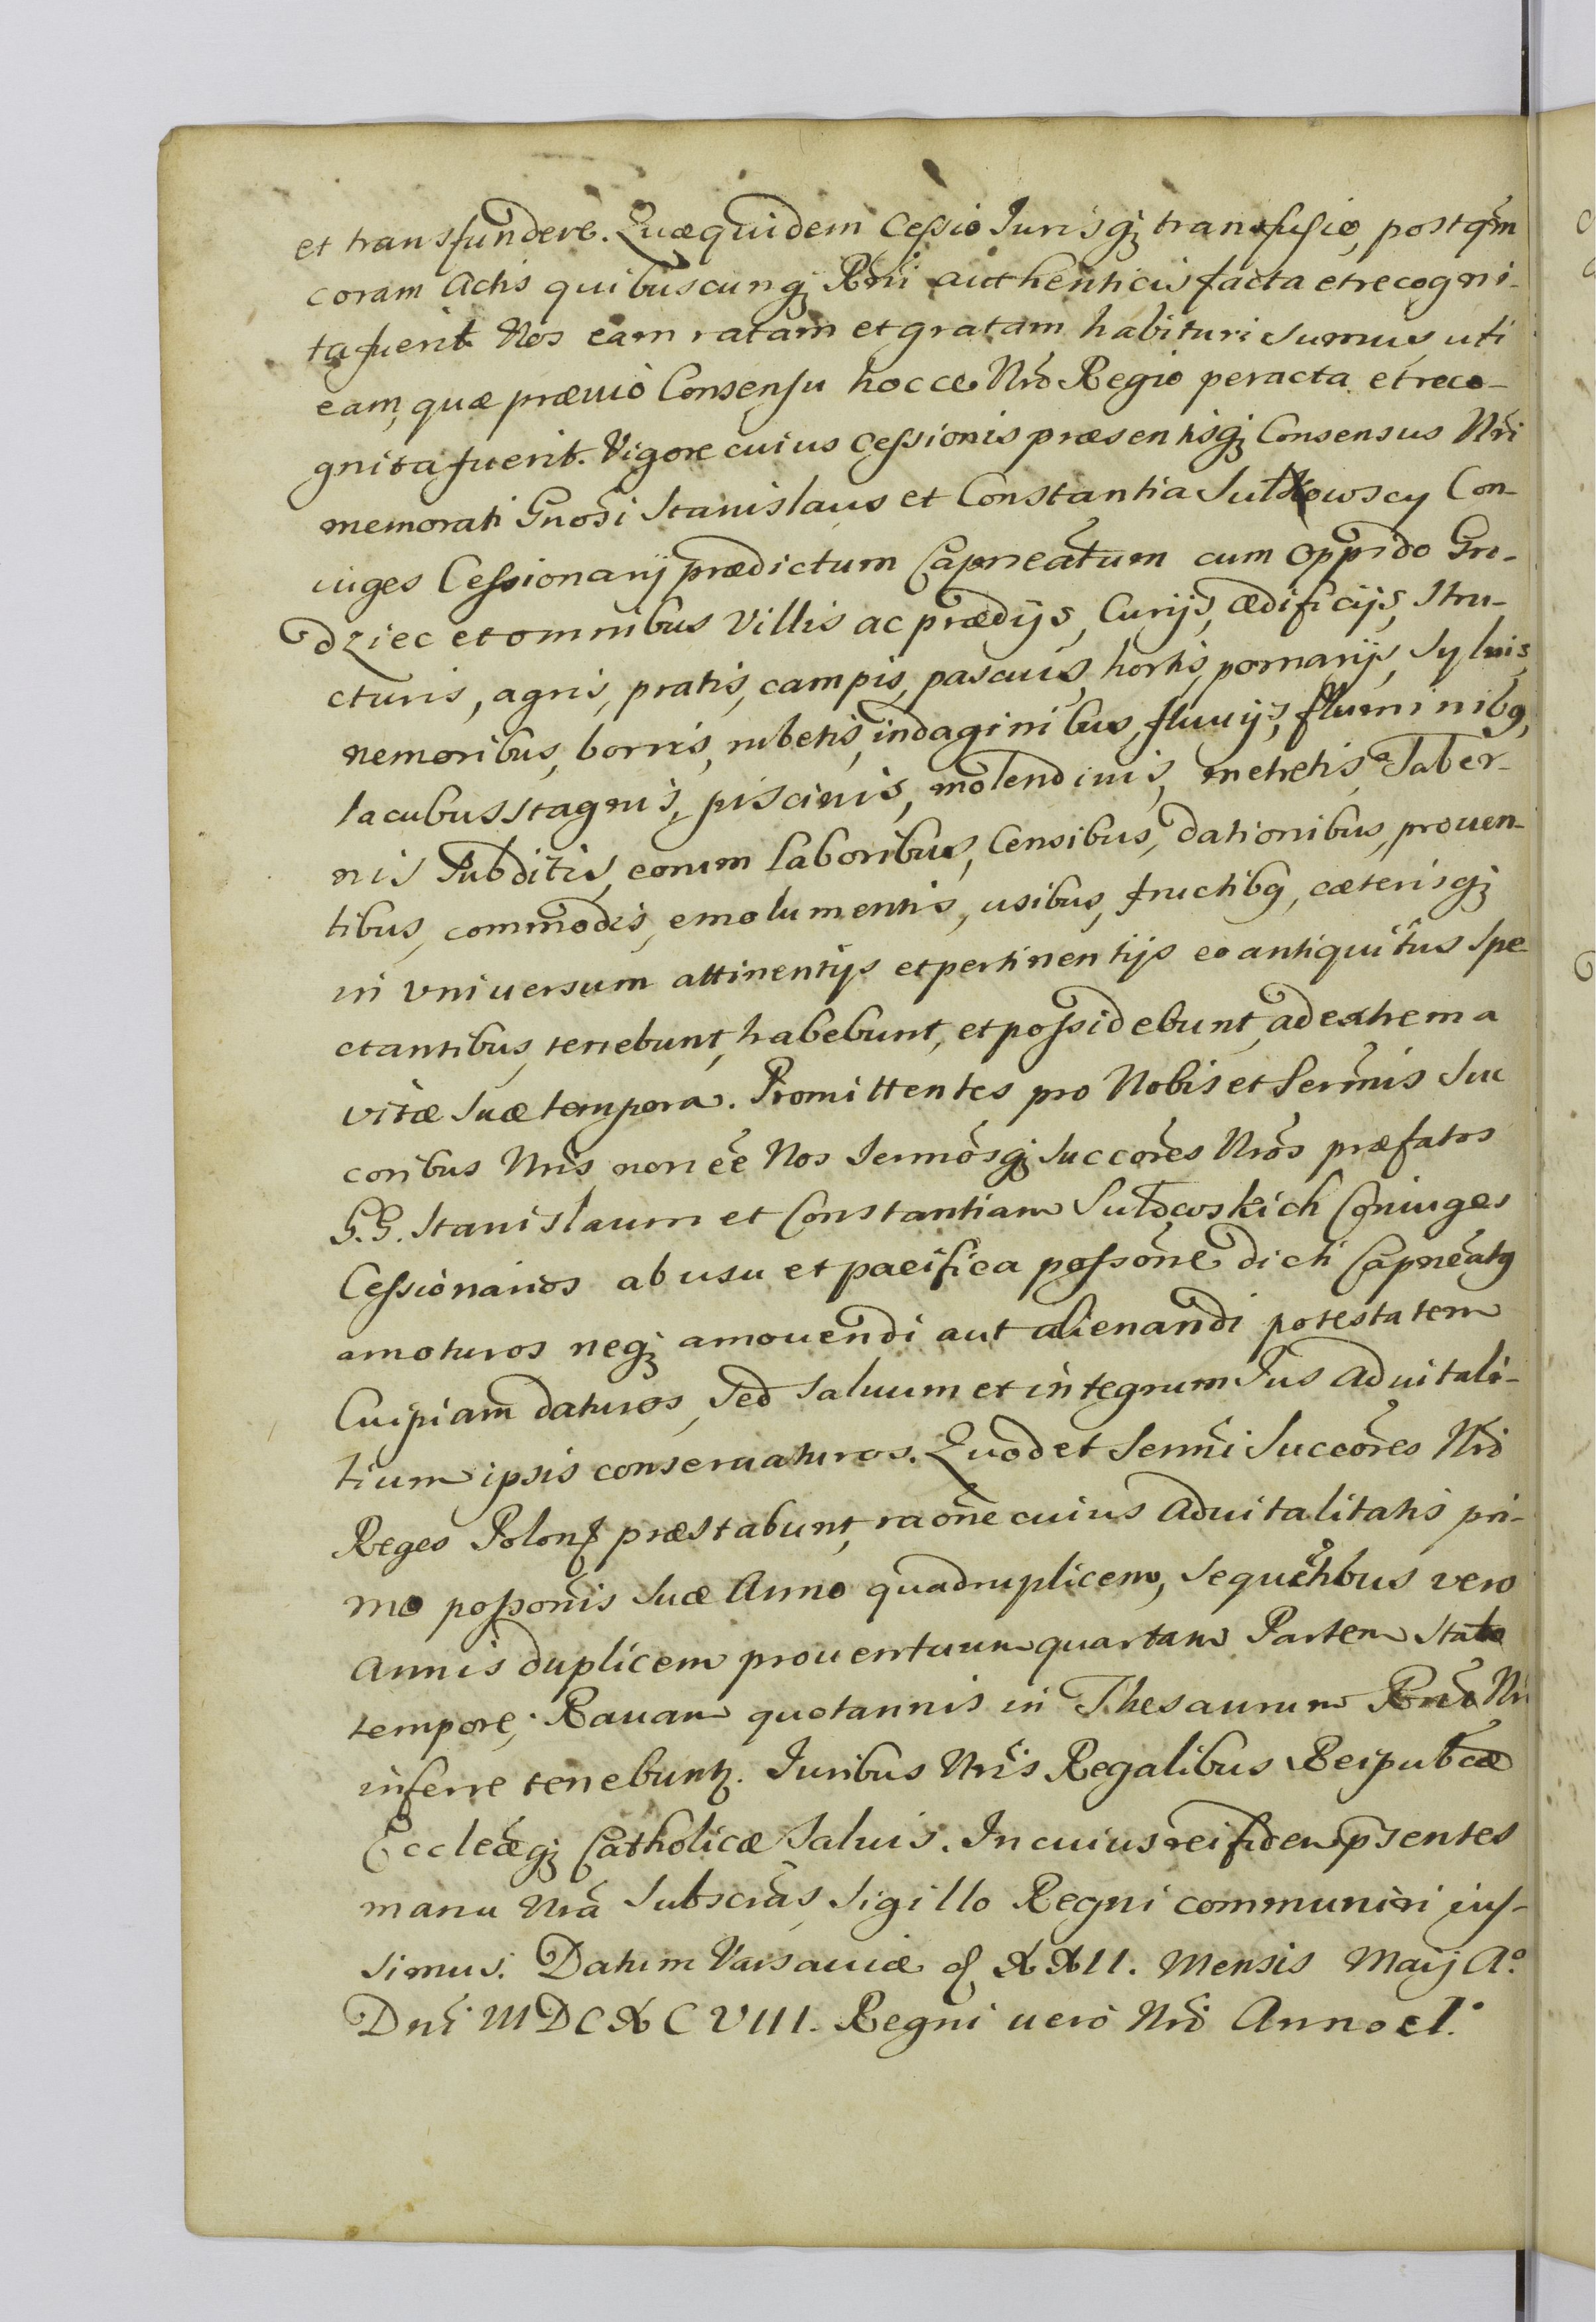 et transfundere. Quæ quidem Cessio Jurisq; transfusio, postqm̃
coram Actis quibuscunq; Rñi authenticis facta et recogni-
ta fuerit Nos eam ratam et gratam habituri sumus, uti
eam, quæ præuiò Consensu hocce Nrõ Regio peracta et reco-
gnita fuerit. Vigore cuius Cessionis præsentisq; Consensus Nrĩ
memorati Gnosĩ Stanislaus et Constantia Sułkowscy Con-
iuges Cessionarij prædictum Capneãtum cum Oppido Gro-
dziec et omnibus Villis ac prædijs, Curijs, ædificijs, Stru-
cturis, agris, pratis, campis, pascuis, hortis, pomarijs, Syluis,
nemoribus, borris, rubetis, indaginibus, fluuijs, fluminibq,
lacubus stagnis, piscinis, molendinis, metretis, Taber-
nis Subditis, eorum laboribus, Censibus, dationibus, prouen-
tibus, commodis, emolumentis, usibus, fructibq, cæterisq;
in vniuersum attinentijs et pertinentijs eo antiquitus Spe-
ctantibus, tenebunt, habebunt, et possidebunt, ad extrema
vitæ suæ tempora. Promittentes pro Nobis et Sermĩs Suc
coribus Nrĩs, non eẽ Nos Sermõsq; Succorẽs Nrõs præfatos
G.G. Stanislaum et Constantiam Sułkowskich Coniuges
Cessionarios ab usu et pacifica possonẽ dicti Capneãtq
amoturos neq; amouendi aut alienandi potestatem
Cuipiam daturos, sed saluum et integrum Jus aduitali-
tium ipsis conseruaturos. Quod et Sermĩ Succorẽs Nrĩ
Reges Polon̄ præstabunt, raonẽ cuius aduitalitatis pri-
mo possonĩs suæ Anno quadruplicem, sequẽtibus vero
Annis duplicem prouentuum quartam Partem stato
tempore, Rauam quotannis in Thesaurum Rnĩ Nrĩ
inferre tenebunt̃. Juribus Nrĩs Regalibus Reipublcæ
Eccleæ̃q; Catholicæ saluis. In cuius rei fidem p̃sentes
manu Nrã Subscrãs, Sigillo Regni communiri ius-
simus. Datum Varsauiæ d. XXII. Mensis Maij A°.
Dnĩ MDCXCVIII. Regni uero Nrĩ Anno I.°